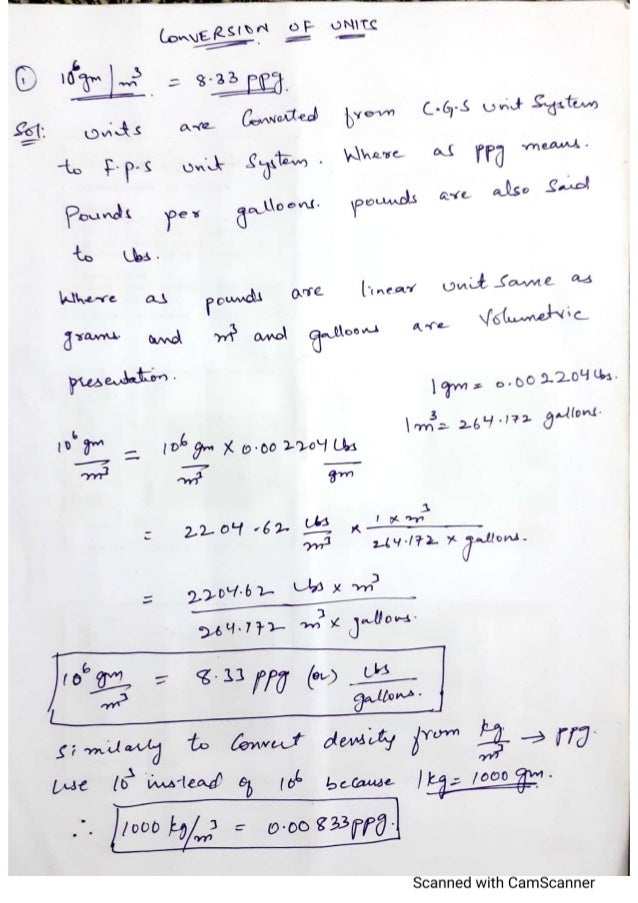 CONVERSION OF UNITS
① 10⁶gm/m³ = 8.33 ppg.
Sol: Units are Converted from C.G.S unit System
to f.p.s unit System. Where as ppg means.
Pounds per galloons. pounds are also Said
to lbs.
Where as pounds are linear unit Same as
grams and m³ and galloons are Volumetric
presentation.
1gm = 0.002204 lbs.
1m³ = 264.172 gallons.
10⁶ gm/m³ = 10⁶ gm/m³ × 0.002204 lbs/gm
= 2204.62 lbs/m³ × 1 × m³/264.172 × gallons.
= 2204.62 lbs × m³/264.172 m³ × gallons.
10⁶ gm/m³ = 8.33 ppg (or) lbs/gallons.
Similarly to Convert density from kg/m³ → ppg.
Use 10³ instead of 10⁶ because 1kg = 1000 gm.
∴ 1000 kg/m³ = 0.00833ppg.
Scanned with CamScanner